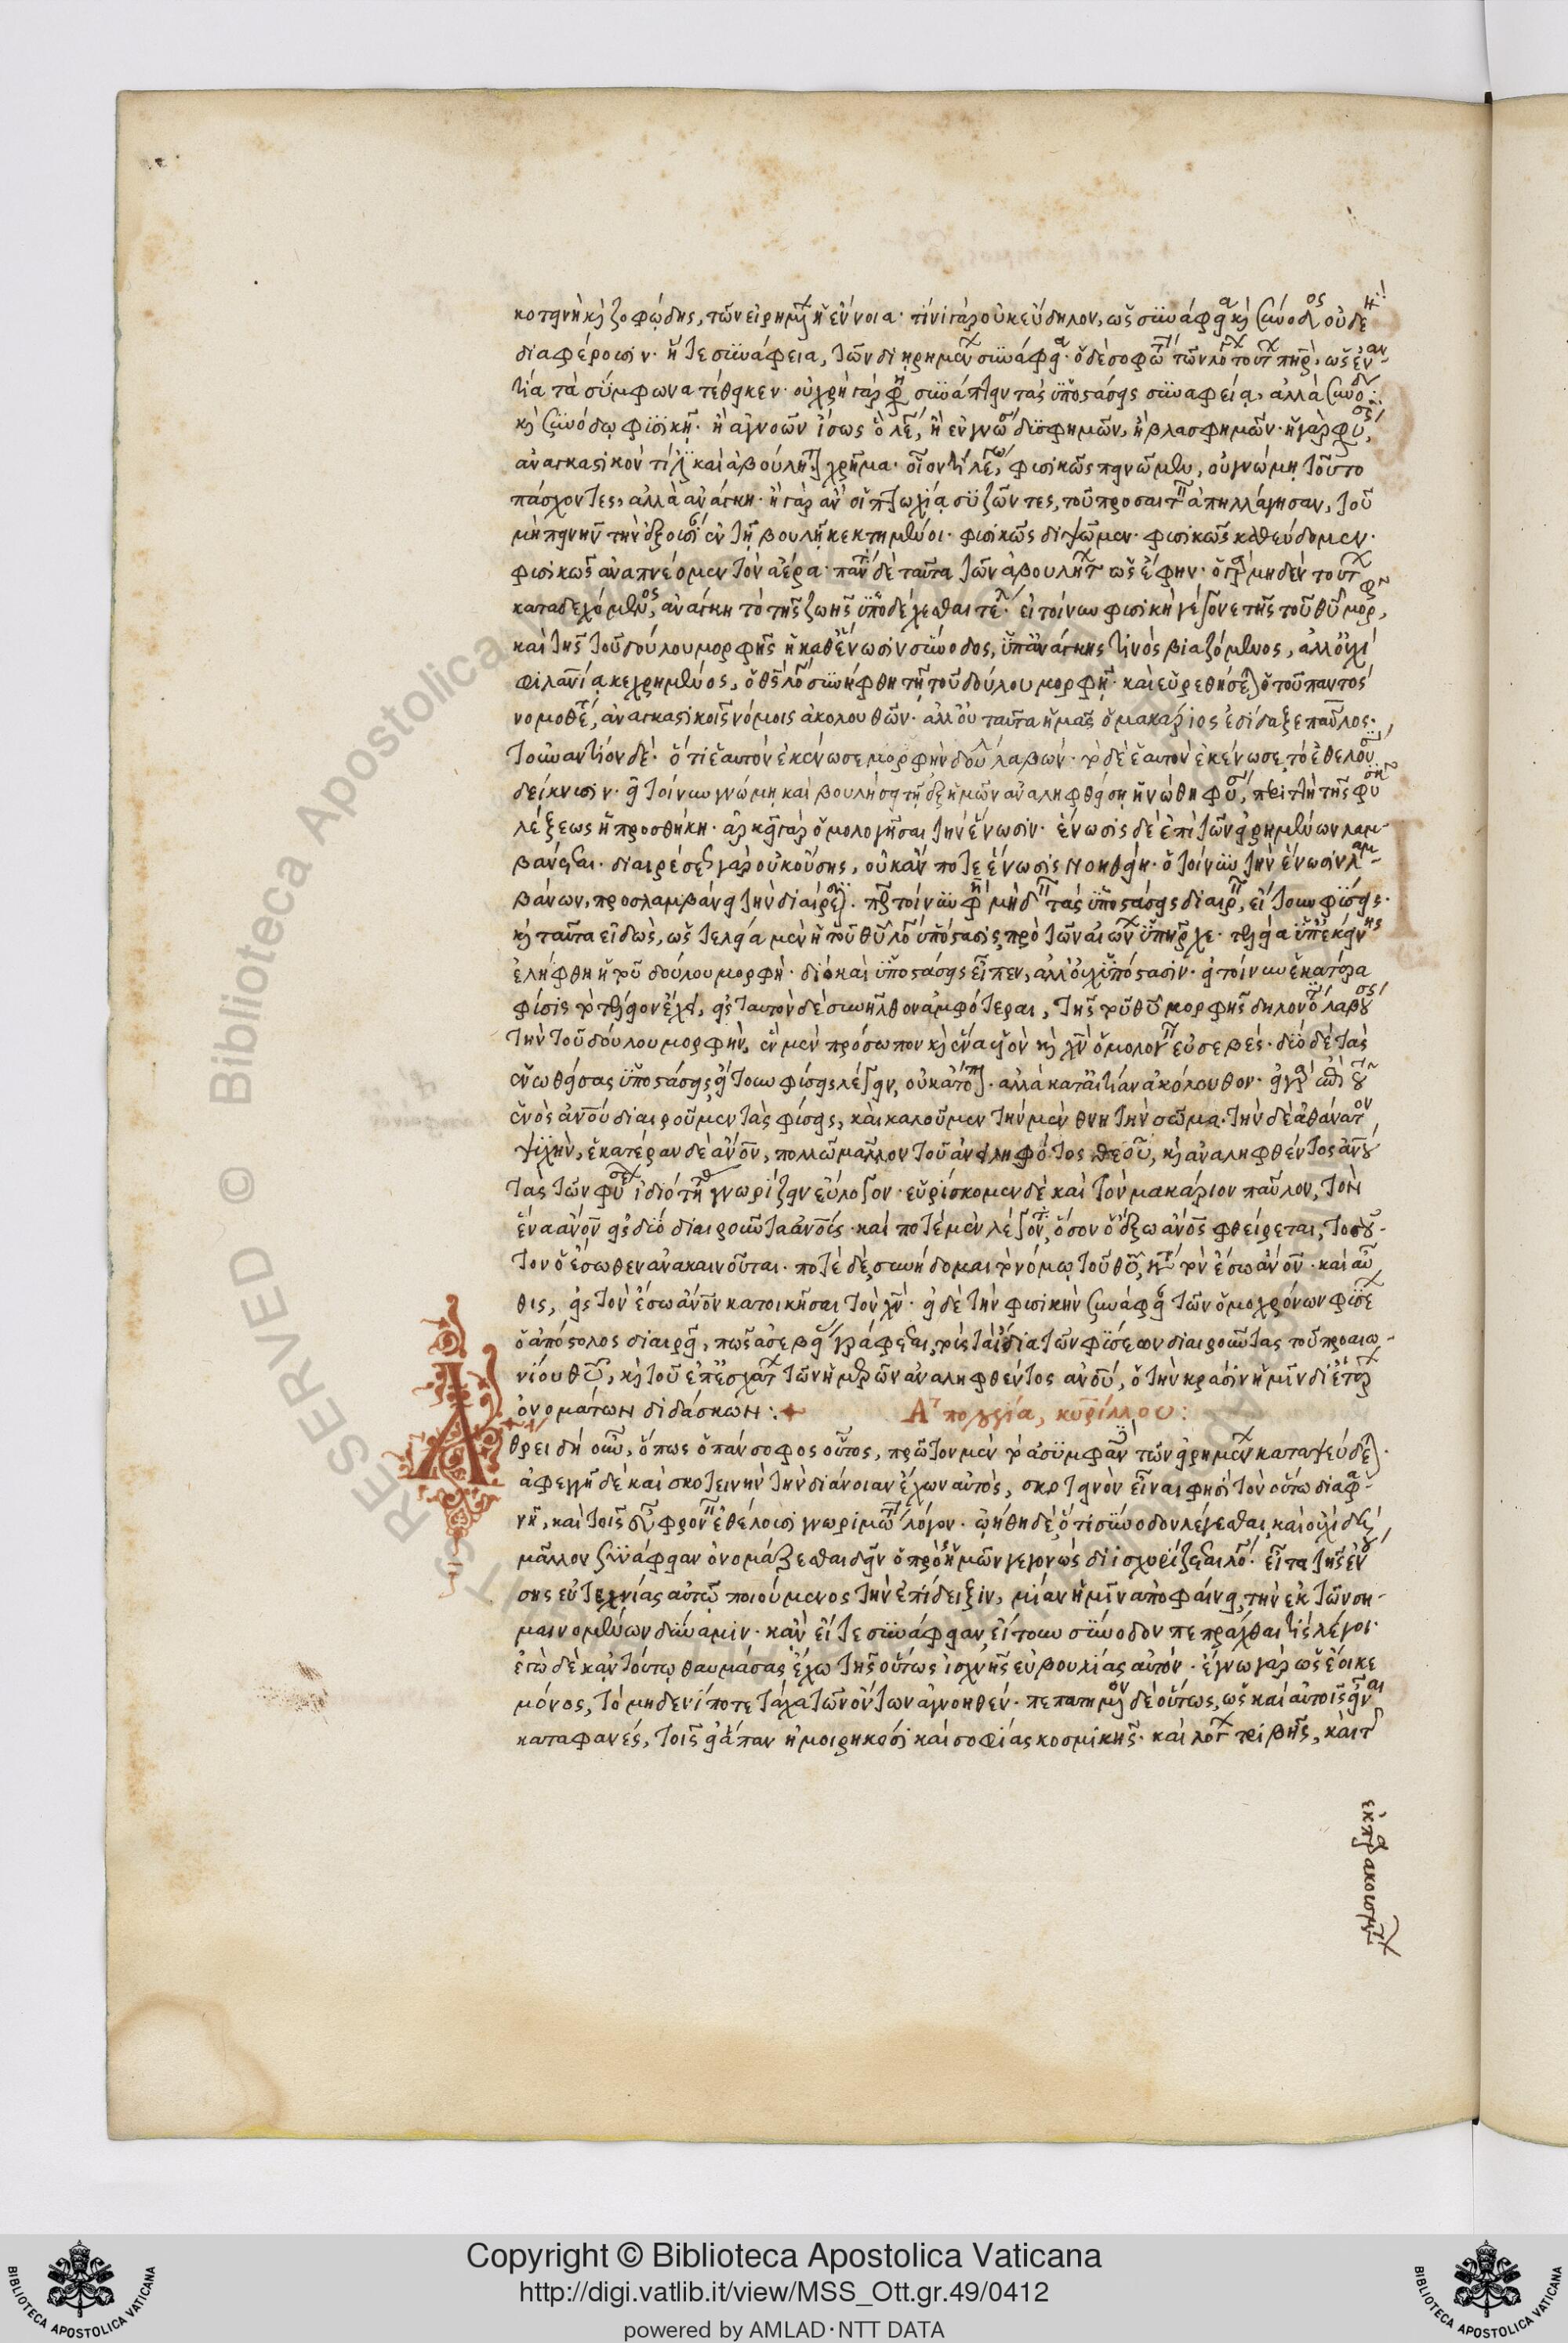 κοτεινὴ κὶ ζοφώδης, τῶν εἰρημ ἡ ἔννοια· τίνι γὰρ οὐκ εὔδηλον, ὡς συνάφεια κὶ σύνοδος οὐδὲν
διαφέρουσιν· ἥ τε συνάφεια, τῶν διῃρημένων συνάφεια· ὁ δὲ σοφώτ τῶν λόγ τούτ πηρ, ὡς ἐναν-
τία τὰ σύμφωνα τέθεικεν· οὐ χρὴ γάρ φη συνάπτειν τὰς ὑποστάσεις συναφείᾳ, ἀλλὰ συνόδ
κὶ συνόδῳ φυσικῇ· ἢ ἀγνοῶν ἴσως ὃ λέγ, ἢ ἐν γνώσ δυσφημῶν, ἢ βλασφημῶν· ἡ γὰρ φύσ,
ἀναγκαστικόν τί ἐστι καὶ ἀβούλητ χρῆμα· οἷόν τι λέγω, φυσικῶς πεινῶμεν, οὐ γνώμῃ τοῦτο
πάσχοντες, ἀλλὰ ἀνάγκῃ· ἦ γὰρ ἂν οἱ πτωχίᾳ συζῶντες, τοῦ προσαιτεῖν ἀπηλλάγησαν, τοῦ
μὴ πεινῆν τὴν ἐξουσί ἐν τῇ βουλῇ κεκτημένοι· φυσικῶς διψῶμεν· φυσικῶς καθεύδομεν·
φυσικῶς ἀναπνέομεν τὸν ἀέρα· πάντ δὲ ταῦτα τῶν ἀβουλήτ ὡς ἔφην· ὁ γὰρ μηδὲν τούτ
καταδεχόμενος, ἀνάγκῃ τὸ τῆς ζωῆς ὑποδέχεσθαι τέλ· εἰ τοίνυν φυσικὴ γέγονε τῆς τοῦ θῦ μορφ,
καὶ τῆς τοῦ δούλου μορφῆς ἡ καθ' ἕνωσιν σύνοδος, ὑπ' ἀνάγκης τινὸς βιαζόμενος, ἀλλ' οὐχὶ
φιλανίᾳ κεχρημένος, ὁ θς λόγ συνήφθη τῇ τοῦ δούλου μορφῇ· καὶ εὑρεθήσεται ὁ τοῦ παντὸς
νομοθέτ, ἀναγκαστικοῖς νόμοις ἀκολουθῶν· ἀλλ' οὐ ταῦτα ἡμᾶς ὁ μακάριος ἐδίδαξε παῦλος·
τοὐναντίον δὲ· ὅτι ἑαυτὸν ἐκένωσε μορφὴν δούλ λαβών· τὸ δὲ ἑαυτὸν ἐκένωσε, τὸ ἐθελού
δείκνυσιν· εἰ τοίνυν γνώμῃ καὶ βουλήσει τῇ ἐξ ἡμῶν ἀναληφθείσῃ ἡνώθη φύσ, περιττὴ τῆς φύση
λέξεως ἡ προσθήκη· ἀρκεῖ γὰρ ὁμολογῆσαι τὴν ἕνωσιν· ἕνωσις δὲ ἐπὶ τῶν διῃρημένων λαμ-
βάνεται· διαιρέσε γὰρ οὐκ οὔσης, οὐκ ἄν ποτε ἕνωσις νοηθείη· ὁ τοίνυν τὴν ἕνωσιν λαμ-
βάνων, προσλαμβάνει τὴν διαίρεσ· πῶς τοίνυν φη μὴ δεῖν τὰς ὑποστάσεις διαιρεῖν, εἴτουν φύσεις·
κὶ ταῦτα εἰδὼς, ὡς τελεία μὲν ἡ τοῦ θῦ λόγ ὑπόστασις, πρὸ τῶν αἰών ὑπῆρχε· τελεία ὑπ' ἐκείνης
ἐλήφθη ἡ τοῦ δούλου μορφή· διὸ καὶ ὑποστάσεις εἶπεν, ἀλλ' οὐχ ὑπόστασιν· εἰ τοίνυν ἑκατέρα
φύσις τὸ τέλειον ἔχει, εἰς ταυτὸν δὲ συνῆλθον ἀμφότεραι, τῆς τοῦ θῦ μορφῆς δηλονότι λαβούσ
τὴν τοῦ δούλου μορφὴν, ἓν μὲν πρόσωπον κὶ ἕνα υἱὸν κὶ χν ὁμολογεῖν εὐσεβές· δύο δὲ τὰς
ἑνωθείσας ὑποστάσεις, εἴτουν φύσεις λέγειν, οὐκ ἄτοπ· ἀλλὰ κατ' αἰτίαν ἀκόλουθον· εἰ γὰρ ἐπὶ τοῦ
ἑνὸς ἀνού διαιροῦμεν τὰς φύσεις, καὶ καλοῦμεν τὴν μὲν θνητὴν σῶμα· τὴν δὲ ἀθάνατον
ψυχὴν, ἑκατέραν δὲ ἀνον, πολλῶ μᾶλλον τοῦ ἀνειληφότος θεοῦ, κὶ ἀναληφθέντος ἀνου
τὰς τῶν φύσε ἰδιότητ γνωρίζειν εὔλογον· εὑρίσκομεν δὲ καὶ τὸν μακάριον παῦλον, τὸν
ἕνα ἀνον εἰς δύο διαιροῦντα ἀνους· καὶ ποτὲ μὲν λέγοντ, ὅσον ὁ ἔξω ἀνος φθείρεται, τοσοῦ-
τον ὁ ἔσωθεν ἀνακαινοῦται· ποτὲ δὲ, συνήδομαι τῷ νόμῳ τοῦ θῦ, κατ τὸν ἔσω ἀνον· καὶ αὖ
θις, εἰς τὸν ἔσω ἀνον κατοικῆσαι τὸν χν· εἰ δὲ τὴν φυσικὴν συνάφει τῶν ὁμοχρόνων φύσε
ὁ ἀπόστολος διαιρεῖ, πῶς ἀσεβεῖ γράφεται, τοὺς τὰ ἴδια τῶν φύσεων διαιροῦντας τοῦ προαιω-
νίου θῦ, κὶ τοῦ ἐπ' ἐσχάτ τῶν ἡμερῶν ἀναληφθέντος ἀνού, ὁ τὴν κρᾶσιν ἡμῖν δι' ἑτέρ
ὀνομάτων διδάσκων:
Ἀπολογία, κυρίλλου:
Ἄθρει δὴ οὖν, ὅπως ὁ πάνσοφος οὗτος, πρῶτον μὲν τὸ ἀσύμφαν τῶν εἰρημέν καταψεύδε·
ἀφεγγῆ δὲ καὶ σκοτεινὴν τὴν διάνοιαν ἔχων αὐτὸς, σκοτεινὸν εἶναι φησὶ τὸν οὕτω διαφα-
νῆ, καὶ τοῖς εὖ φρονεῖν ἐθέλουσι γνωριμώτ λόγον· ᾠήθη δὲ, ὅτι σύνοδον λέγεσθαι καὶ οὐχὶ δὲ
μᾶλλον συνάφειαν ὀνομάζεσθαι δεῖν ὁ πρὸς ἡμῶν γεγονὼς διισχυρίζεται λόγ· εἶτα τῆς ἐνού
σης εὐτεχνίας αὐτῷ ποιούμενος τὴν ἐπίδειξιν, μίαν ἡμῖν ἀποφαίνει, τὴν ἐκ τῶν ση-
μαινομένων δύναμιν· κἂν εἴτε συνάφειαν, εἴτουν σύνοδον πεπράχθαι τὶς λέγοι·
ἐγὼ δὲ κἀν τούτῳ θαυμάσας ἔχω τῆς οὕτως ἰσχνῆς εὐβουλίας αὐτόν· ἔγνω γὰρ ὡς ἔοικε
μόνος, τὸ μηδενί ποτε τάχα τῶν ὄντων ἀγνοηθέν· πεπατημ δὲ οὕτως, ὡς καὶ αὐτοῖς εἶναι
καταφανές, τοῖς εἰσάπαν ἠμοιρηκόσι καὶ σοφίας κοσμικῆς· καὶ λόγ τριβῆς, καὶ τ
ἐκ παρακουσμάτ
RESERVED © Biblioteca Apostolica
Copyright © Biblioteca Apostolica Vaticana
http://digi.vatlib.it/view/MSS_Ott.gr.49/0412
powered by AMLAD·NTT DATA
BIBLIOTECA APOSTOLICA VATICANA
BIBLIOTECA APOSTOLICA VATICANA